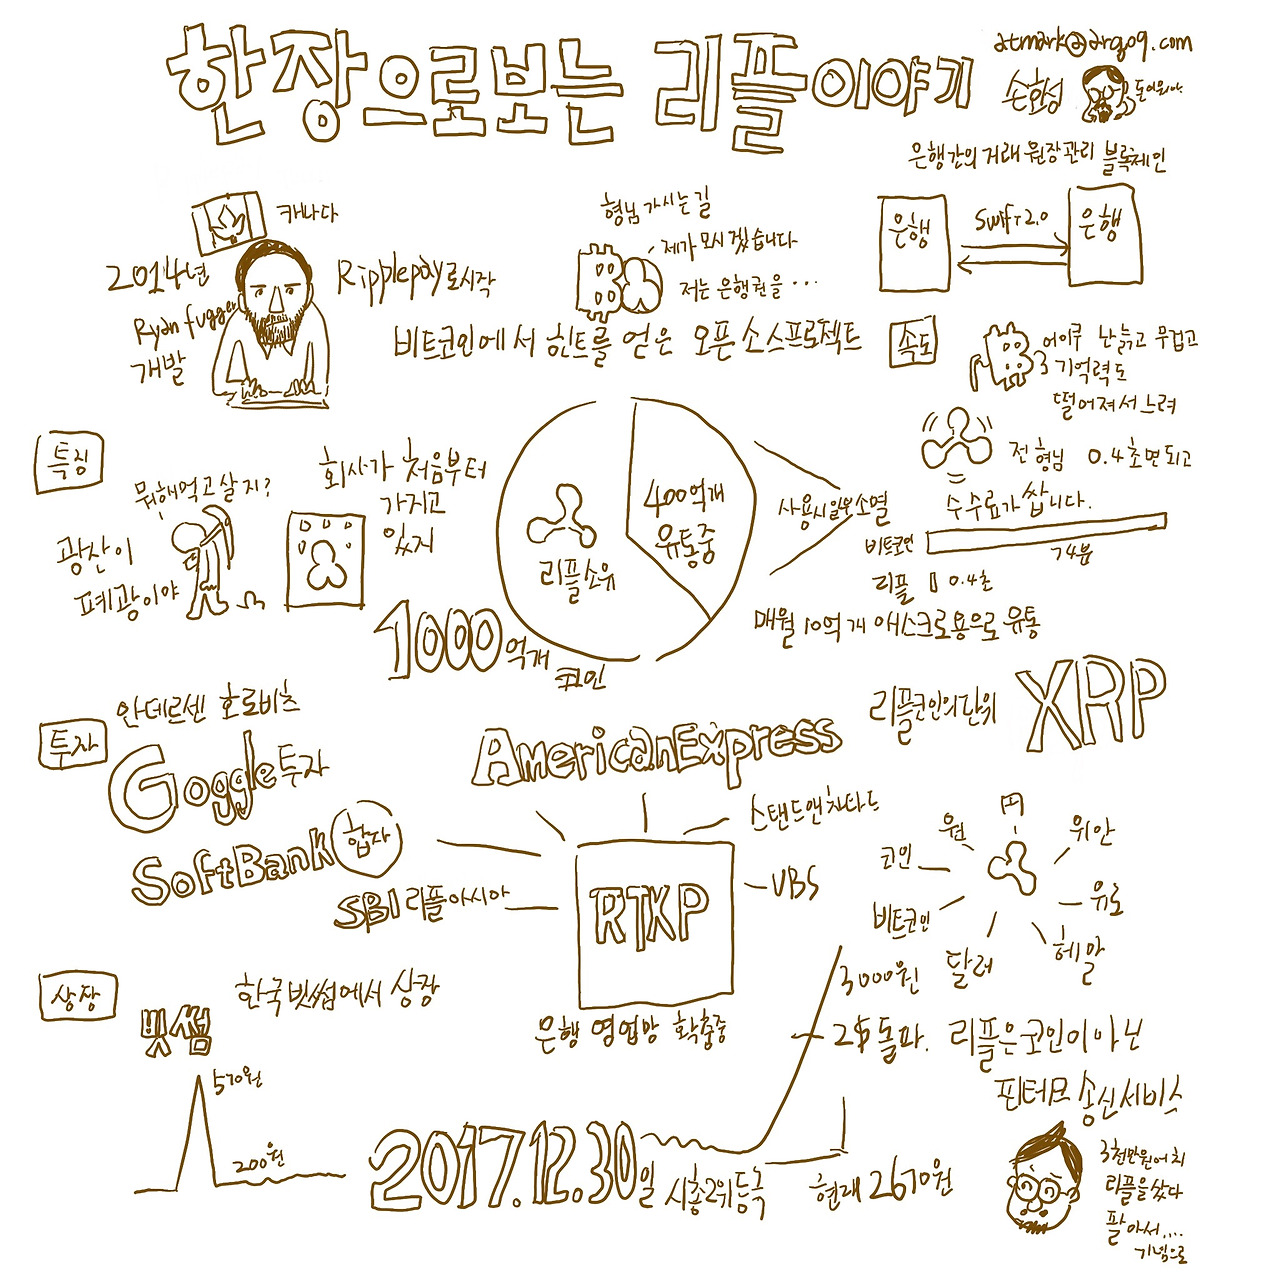 한장으로보는 리플이야기
atmark@argo9.com
손호성
돌이워야
은행간의 거래 원장관리 블록체인
캐나다
2014년
Ryan fugger
개발
Ripplepay로시작
형님 가시는 길
제가 모시겠습니다
저는 은행권을...
비트코인에서 힌트를 얻은 오픈 소스프로젝트
은행
Swift 2.0
은행
속도
어이쿠 난 늙고 무겁고
기억력도
떨어져서 느려
전 형님 0.4초면되고
수수료가 쌉니다.
비트코인
74분
리플 0.4초
특징
뭐해먹고살지?
광산이
폐광이야
회사가 처음부터
가지고
있지
리플소유
400억개
유통중
사용시 일부소멸
매월 10억개 애스크로용으로 유통
1000억개
코인
투자
안데르센 호로비츠
Goggle투자
SoftBank 합자
SBI 리플아시아
AmericanExpress
스탠드앤차타드
UBS
RTKP
은행 영업망 확충중
리플코인의단위 XRP
円
원
위안
코인
유로
비트코인
달러
헤알
상장
한국 빗썸에서 상장
빗썸
570원
200원
2017.12.30일
시총2위등극
3000원
2$ 돌파.
현재 2670원
리플은 코인이 아닌
핀테크 송신서비스
3천만원어치
리플을샀다
팔아서....
기념으로